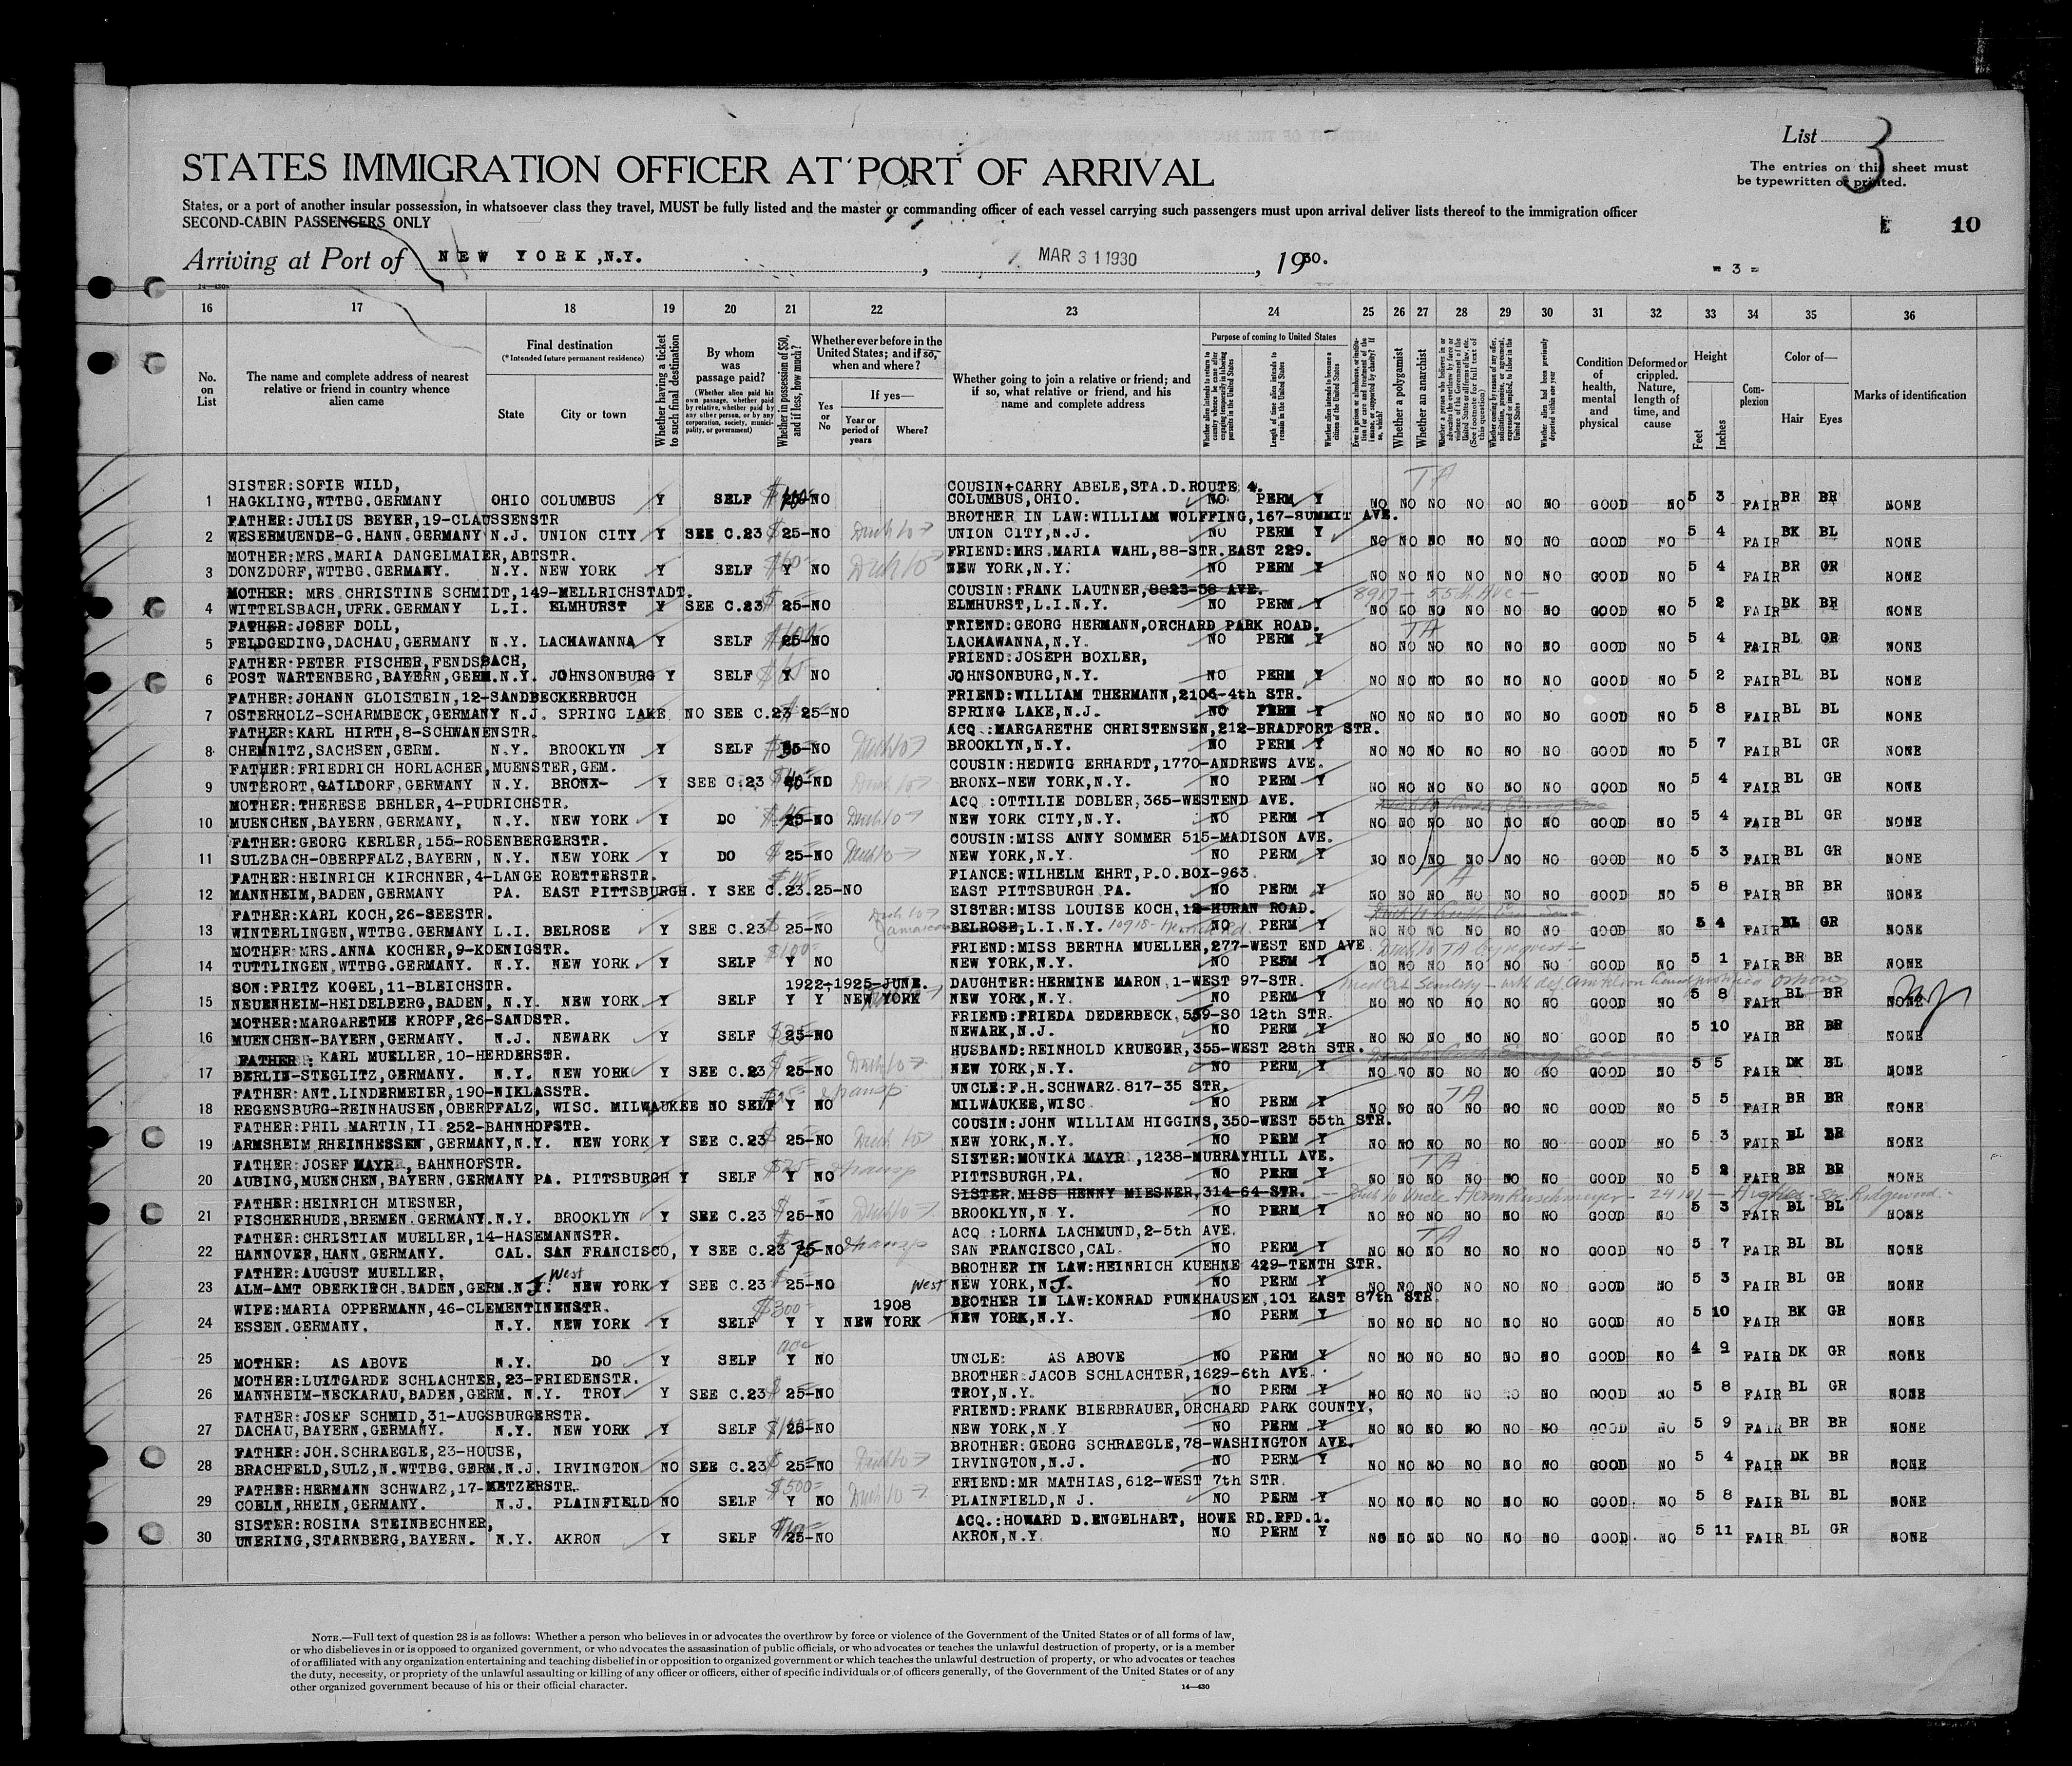 List 3
The entries on this sheet must
be typewritten or printed.
STATES IMMIGRATION OFFICER AT PORT OF ARRIVAL
States, or a port of another insular possession, in whatsoever class they travel, MUST be fully listed and the master or commanding officer of each vessel carrying such passengers must upon arrival deliver lists thereof to the immigration officer
SECOND-CABIN PASSENGERS ONLY
10
Arriving at Port of NEW YORK, N.Y. , MAR 31 1930 , 1930.
= 3 =
14-430
16 17 18 19 20 21 22 23 24 25 26 27 28 29 30 31 32 33 34 35 36
No. on List
The name and complete address of nearest relative or friend in country whence alien came
Final destination
(*Intended future permanent residence)
State
City or town
Whether having a ticket to such final destination
By whom was passage paid?
(Whether alien paid his own passage, whether paid by relative, whether paid by any other person, or by any corporation, society, municipality, or government)
Whether in possession of $50, and if less, how much?
Whether ever before in the United States; and if so, when and where?
Yes or No
If yes—
Year or period of years
Where?
Whether going to join a relative or friend; and if so, what relative or friend, and his name and complete address
Purpose of coming to United States
Whether alien intends to return to country whence he came after engaging temporarily in laboring pursuits in the United States
Length of time alien intends to remain in the United States
Whether alien intends to become a citizen of the United States
Whether a polygamist
Whether an anarchist
Condition of health, mental and physical
Deformed or crippled. Nature, length of time, and cause
Height
Feet
Inches
Complexion
Color of—
Hair
Eyes
Marks of identification
SISTER:SOFIE WILD, COUSIN+CARRY ABELE,STA.D.ROUTE 4. TA
1 HAGKLING,WTTBG.GERMANY OHIO COLUMBUS Y SELF NO COLUMBUS,OHIO. NO PERM Y NO NO NO NO NO NO GOOD NO 5 3 FAIR BR BR NONE
FATHER:JULIUS BEYER,19-CLAUSSENSTR BROTHER IN LAW:WILLIAM WOLFFING,167-SUMMIT AVE.
2 WESERMUENDE-G.HANN.GERMANY N.J. UNION CITY Y SEE C.23 $ 25-NO UNION CITY,N.J. NO PERM Y NO NO NO NO NO NO GOOD NO 5 4 FAIR BK BL NONE
MOTHER:MRS.MARIA DANGELMAIER,ABTSTR. FRIEND:MRS.MARIA WAHL,88-STR.EAST 229.
3 DONZDORF,WTTBG.GERMANY. N.Y. NEW YORK Y SELF Y NO NEW YORK,N.Y. NO PERM Y NO NO NO NO NO NO GOOD NO 5 4 FAIR BR GR NONE
MOTHER: MRS CHRISTINE SCHMIDT,149-MELLRICHSTADT. COUSIN:FRANK LAUTNER,8823-58 AVE. 8917 - 55th Ave -
4 WITTELSBACH,UFRK.GERMANY L.I. ELMHURST Y SEE C.23 25-NO ELMHURST,L.I.N.Y. NO PERM Y NO NO NO NO NO NO GOOD NO 5 2 FAIR BK BR NONE
FATHER:JOSEF DOLL, FRIEND:GEORG HERMANN,ORCHARD PARK ROAD. TA
5 FELDGEDING,DACHAU,GERMANY N.Y. LACKAWANNA Y SELF 25-NO LACKAWANNA,N.Y. NO PERM Y NO NO NO NO NO NO GOOD NO 5 4 FAIR BL GR NONE
FATHER:PETER FISCHER,FENDSBACH, FRIEND:JOSEPH BOXLER,
6 POST WARTENBERG,BAYERN,GERM.N.Y. JOHNSONBURG Y SELF Y NO JOHNSONBURG,N.Y. NO PERM Y NO NO NO NO NO NO GOOD NO 5 2 FAIR BL BL NONE
FATHER:JOHANN GLOISTEIN,12-SANDBECKERBRUCH FRIEND:WILLIAM THERMANN,2106-4th STR.
7 OSTERHOLZ-SCHARMBECK,GERMANY N.J. SPRING LAKE NO SEE C.23 25-NO SPRING LAKE,N.J. NO PERM Y NO NO NO NO NO NO GOOD NO 5 8 FAIR BL BL NONE
FATHER:KARL HIRTH,8-SCHWANENSTR. ACQ.:MARGARETHE CHRISTENSEN,212-BRADFORT STR.
8 CHEMNITZ,SACHSEN,GERM. N.Y. BROOKLYN Y SELF NO BROOKLYN,N.Y. NO PERM Y NO NO NO NO NO NO GOOD NO 5 7 FAIR BL GR NONE
FATHER:FRIEDRICH HORLACHER,MUENSTER,GEM. COUSIN:HEDWIG ERHARDT,1770-ANDREWS AVE.
9 UNTERORT,GAILDORF,GERMANY N.Y. BRONX- Y SEE C.23 BRONX-NEW YORK,N.Y. NO PERM Y NO NO NO NO NO NO GOOD NO 5 4 FAIR BL GR NONE
MOTHER:THERESE BEHLER,4-PUDRICHSTR. ACQ.:OTTILIE DOBLER,365-WESTEND AVE.
10 MUENCHEN,BAYERN,GERMANY, N.Y. NEW YORK Y DO 25-NO NEW YORK CITY,N.Y. NO PERM Y NO NO NO NO NO NO GOOD NO 5 4 FAIR BL GR NONE
FATHER:GEORG KERLER,155-ROSENBERGERSTR. COUSIN:MISS ANNY SOMMER 515-MADISON AVE.
11 SULZBACH-OBERPFALZ,BAYERN, N.Y. NEW YORK Y DO $ 25-NO NEW YORK,N.Y. NO PERM Y NO NO NO NO NO NO GOOD NO 5 3 FAIR BL GR NONE
FATHER:HEINRICH KIRCHNER,4-LANGE ROETTERSTR. FIANCE:WILHELM EHRT,P.O.BOX-963. TA
12 MANNHEIM,BADEN,GERMANY PA. EAST PITTSBURGH. Y SEE C.23.25-NO EAST PITTSBURGH PA. NO PERM Y NO NO NO NO NO NO GOOD NO 5 8 FAIR BR BR NONE
FATHER:KARL KOCH,26-SEESTR. SISTER:MISS LOUISE KOCH,12-HURAN ROAD.
13 WINTERLINGEN,WTTBG.GERMANY L.I. BELROSE Y SEE C.23 $ 25-NO Jamaica BELROSE,L.I.N.Y. NO PERM Y NO NO NO NO NO NO GOOD NO 5 4 FAIR BL GR NONE
MOTHER:MRS.ANNA KOCHER,9-KOENIGSTR. $100 FRIEND:MISS BERTHA MUELLER,277-WEST END AVE
14 TUTTLINGEN,WTTBG.GERMANY. N.Y. NEW YORK Y SELF Y NO NEW YORK,N.Y. NO PERM Y NO NO NO NO NO NO GOOD NO 5 1 FAIR BR BR NONE
SON:FRITZ KOGEL,11-BLEICHSTR. 1922-1925-JUNE. DAUGHTER:HERMINE MARON,1-WEST 97-STR.
15 NEUENHEIM-HEIDELBERG,BADEN, N.Y. NEW YORK Y SELF Y Y NEW YORK NEW YORK,N.Y. NO PERM Y 5 8 FAIR BL BR NONE
MOTHER:MARGARETHE KROPF,26-SANDSTR. FRIEND:FRIEDA DEDERBECK,559-SO 12th STR.
16 MUENCHEN-BAYERN,GERMANY. N.J. NEWARK Y SELF 25-NO NEWARK,N.J. NO PERM Y NO NO NO NO NO NO GOOD NO 5 10 FAIR BR BR NONE
FATHER: KARL MUELLER,10-HERDERSTR. HUSBAND:REINHOLD KRUEGER,355-WEST 28th STR.
17 BERLIN-STEGLITZ,GERMANY. N.Y. NEW YORK Y SEE C.23 25-NO NEW YORK,N.Y. NO PERM Y NO NO NO NO NO NO GOOD NO 5 5 FAIR DK BL NONE
FATHER:ANT.LINDERMEIER,190-NIKLASSTR. UNCLE:F.H.SCHWARZ.817-35 STR. TA
18 REGENSBURG-REINHAUSEN,OBERPFALZ, WISC. MILWAUKEE NO SELF Y NO MILWAUKEE,WISC NO PERM Y NO NO NO NO NO NO GOOD NO 5 5 FAIR BR BR NONE
FATHER:PHIL MARTIN,II 252-BAHNHOFSTR. COUSIN:JOHN WILLIAM HIGGINS,350-WEST 55th STR.
19 ARMSHEIM RHEINHESSEN,GERMANY,N.Y. NEW YORK Y SEE C.23 $ 25-NO NEW YORK,N.Y. NO PERM Y NO NO NO NO NO NO GOOD NO 5 3 FAIR BL BR NONE
FATHER:JOSEF MAYR, BAHNHOFSTR. SISTER:MONIKA MAYR ,1238-MURRAYHILL AVE. TA
20 AUBING,MUENCHEN,BAYERN,GERMANY PA. PITTSBURGH Y SELF Y NO PITTSBURGH,PA. NO PERM Y NO NO NO NO NO NO GOOD NO 5 2 FAIR BR BR NONE
FATHER:HEINRICH MIESNER, SISTER:MISS HENNY MIESNER,314-64-STR.
21 FISCHERHUDE,BREMEN.GERMANY.N.Y. BROOKLYN Y SEE C.23 25-NO BROOKLYN,N.Y. NO PERM Y NO NO NO NO NO NO GOOD NO 5 3 FAIR BL BL NONE
FATHER:CHRISTIAN MUELLER,14-HASEMANNSTR. ACQ.:LORNA LACHMUND,2-5th AVE. TA
22 HANNOVER,HANN.GERMANY. CAL. SAN FRANCISCO, Y SEE C.23 75-NO transp SAN FRANCISCO,CAL. NO PERM Y NO NO NO NO NO NO GOOD NO 5 7 FAIR BL BL NONE
FATHER:AUGUST MUELLER, BROTHER IN LAW:HEINRICH KUEHNE 429-TENTH STR.
23 ALM-AMT OBERKIRCH.BADEN,GERM.N.J. West NEW YORK Y SEE C.23 25-NO West NEW YORK,N.J. NO PERM Y NO NO NO NO NO NO GOOD NO 5 3 FAIR BL GR NONE
WIFE:MARIA OPPERMANN,46-CLEMENTINENSTR. $300 1908 BROTHER IN LAW:KONRAD FUNKHAUSEN,101 EAST 87th STR.
24 ESSEN.GERMANY. N.Y. NEW YORK Y SELF Y Y NEW YORK NEW YORK,N.Y. NO PERM Y NO NO NO NO NO NO GOOD NO 5 10 FAIR BK GR NONE
25 MOTHER: AS ABOVE N.Y. DO Y SELF Y NO UNCLE: AS ABOVE NO PERM Y NO NO NO NO NO NO GOOD NO 4 9 FAIR DK GR NONE
MOTHER:LUITGARDE SCHLACHTER,23-FRIEDENSTR. BROTHER:JACOB SCHLACHTER,1629-6th AVE.
26 MANNHEIM-NECKARAU,BADEN,GERM. N.Y. TROY Y SEE C.23 25-NO TROY,N.Y. NO PERM Y NO NO NO NO NO NO GOOD NO 5 8 FAIR BL GR NONE
FATHER:JOSEF SCHMID,31-AUGSBURGERSTR. FRIEND:FRANK BIERBRAUER,ORCHARD PARK COUNTY,
27 DACHAU,BAYERN,GERMANY. N.Y. NEW YORK Y SELF 25-NO NEW YORK,N.Y NO PERM Y NO NO NO NO NO NO GOOD NO 5 9 FAIR BR BR NONE
FATHER:JOH.SCHRAEGLE,23-HOUSE, BROTHER:GEORG SCHRAEGLE,78-WASHINGTON AVE.
28 BRACHFELD,SULZ,N.WTTBG.GERM.N.J. IRVINGTON NO SEE C.23 25-NO IRVINGTON,N.J. NO PERM Y NO NO NO NO NO NO GOOD NO 5 4 FAIR DK BR NONE
FATHER:HERMANN SCHWARZ,17-METZERSTR. $500 FRIEND:MR MATHIAS,612-WEST 7th STR.
29 COELN,RHEIN,GERMANY. N.J. PLAINFIELD NO SELF Y NO PLAINFIELD,N J. NO PERM Y NO NO NO NO NO NO GOOD. NO 5 8 FAIR BL BL NONE
SISTER:ROSINA STEINBECHNER, ACQ.:HOWARD D.ENGELHART, HOWE RD.RFD.1.
30 UNERING,STARNBERG,BAYERN. N.Y. AKRON Y SELF 25-NO AKRON,N.Y. NO PERM Y NO NO NO NO NO NO GOOD NO 5 11 FAIR BL GR NONE
NOTE.—Full text of question 28 is as follows: Whether a person who believes in or advocates the overthrow by force or violence of the Government of the United States or of all forms of law,
or who disbelieves in or is opposed to organized government, or who advocates the assassination of public officials, or who advocates or teaches the unlawful destruction of property, or is a member
of or affiliated with any organization entertaining and teaching disbelief in or opposition to organized government or which teaches the unlawful destruction of property, or who advocates or teaches
the duty, necessity, or propriety of the unlawful assaulting or killing of any officer or officers, either of specific individuals or of officers generally, of the Government of the United States or of any
other organized government because of his or their official character.
14—430